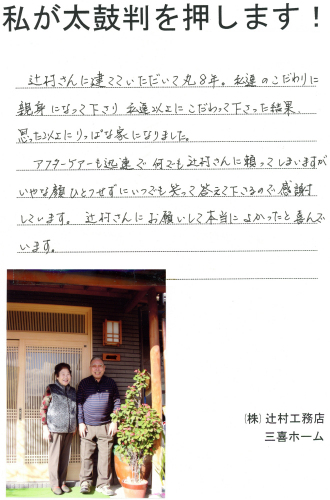 私が太鼓判を押します！
辻村さんに建てていただいて丸8年。私達のこだわりに
親身になって下さり 私達以上にこだわって下さった結果、
思った以上にりっぱな家になりました。
アフターケアーも迅速で何でも辻村さんに頼ってしまいますが
いやな顔ひとつせずにいつでも笑って答えて下さるので感謝
しています。辻村さんにお願いして本当によかったと喜んで
います。
(株)辻村工務店
三喜ホーム